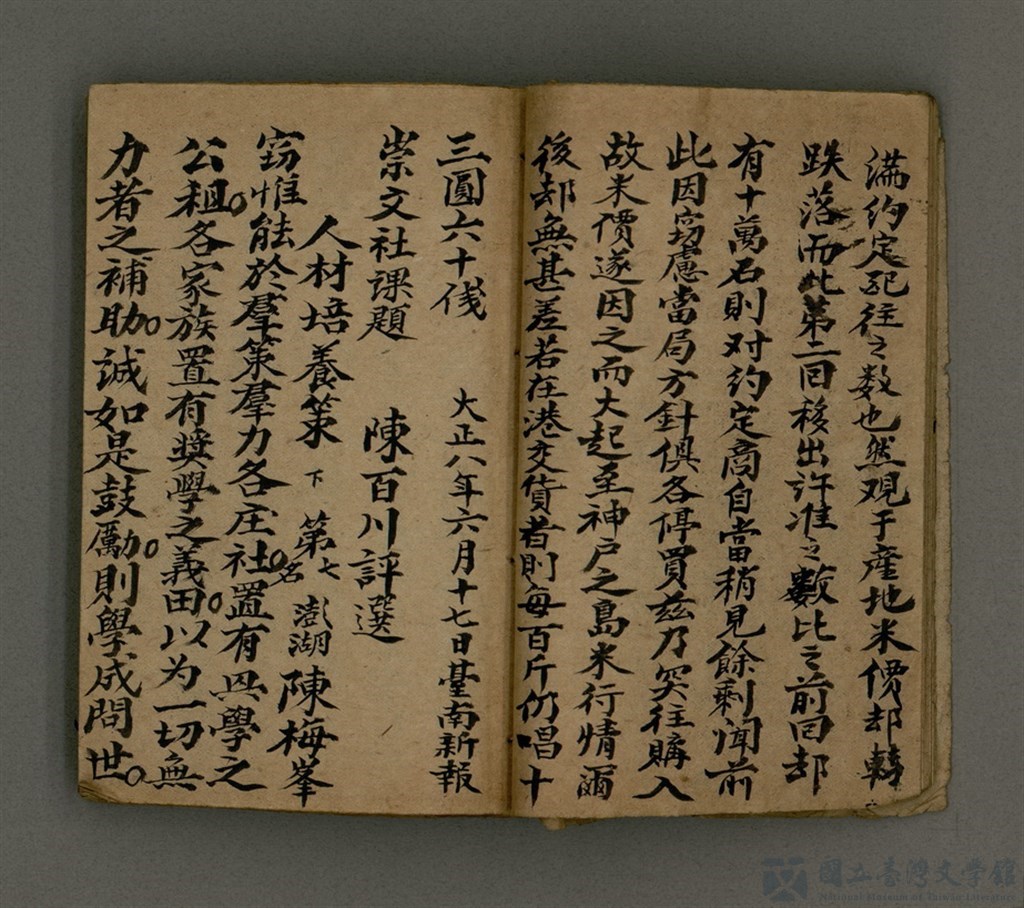 滿約定配往之数也然观于產地米價却轉
跌落而此第二回移出許准之數比之前回却
有十萬石則对約定商自當稍見餘剩闻前
此因窃慮當局方針俱各停買兹乃突往購入
故米價遂因之而大起至神户之島米行情爾
後却無甚差若在港交貨者則每百斤仍唱十
三圓六十伐　大正八年六月十七日臺南新報
崇文社課題　陳百川評選
人材培養策　下　第七名　澎湖　陳梅峯
窃惟能於羣策羣力各庄社。置有興學之
公租。各家族置有奬學之義田。以为一切無
力者之補助。誠如是鼓勵。則學成問世。
國立臺灣文學館
National Museum of Taiwan Literature